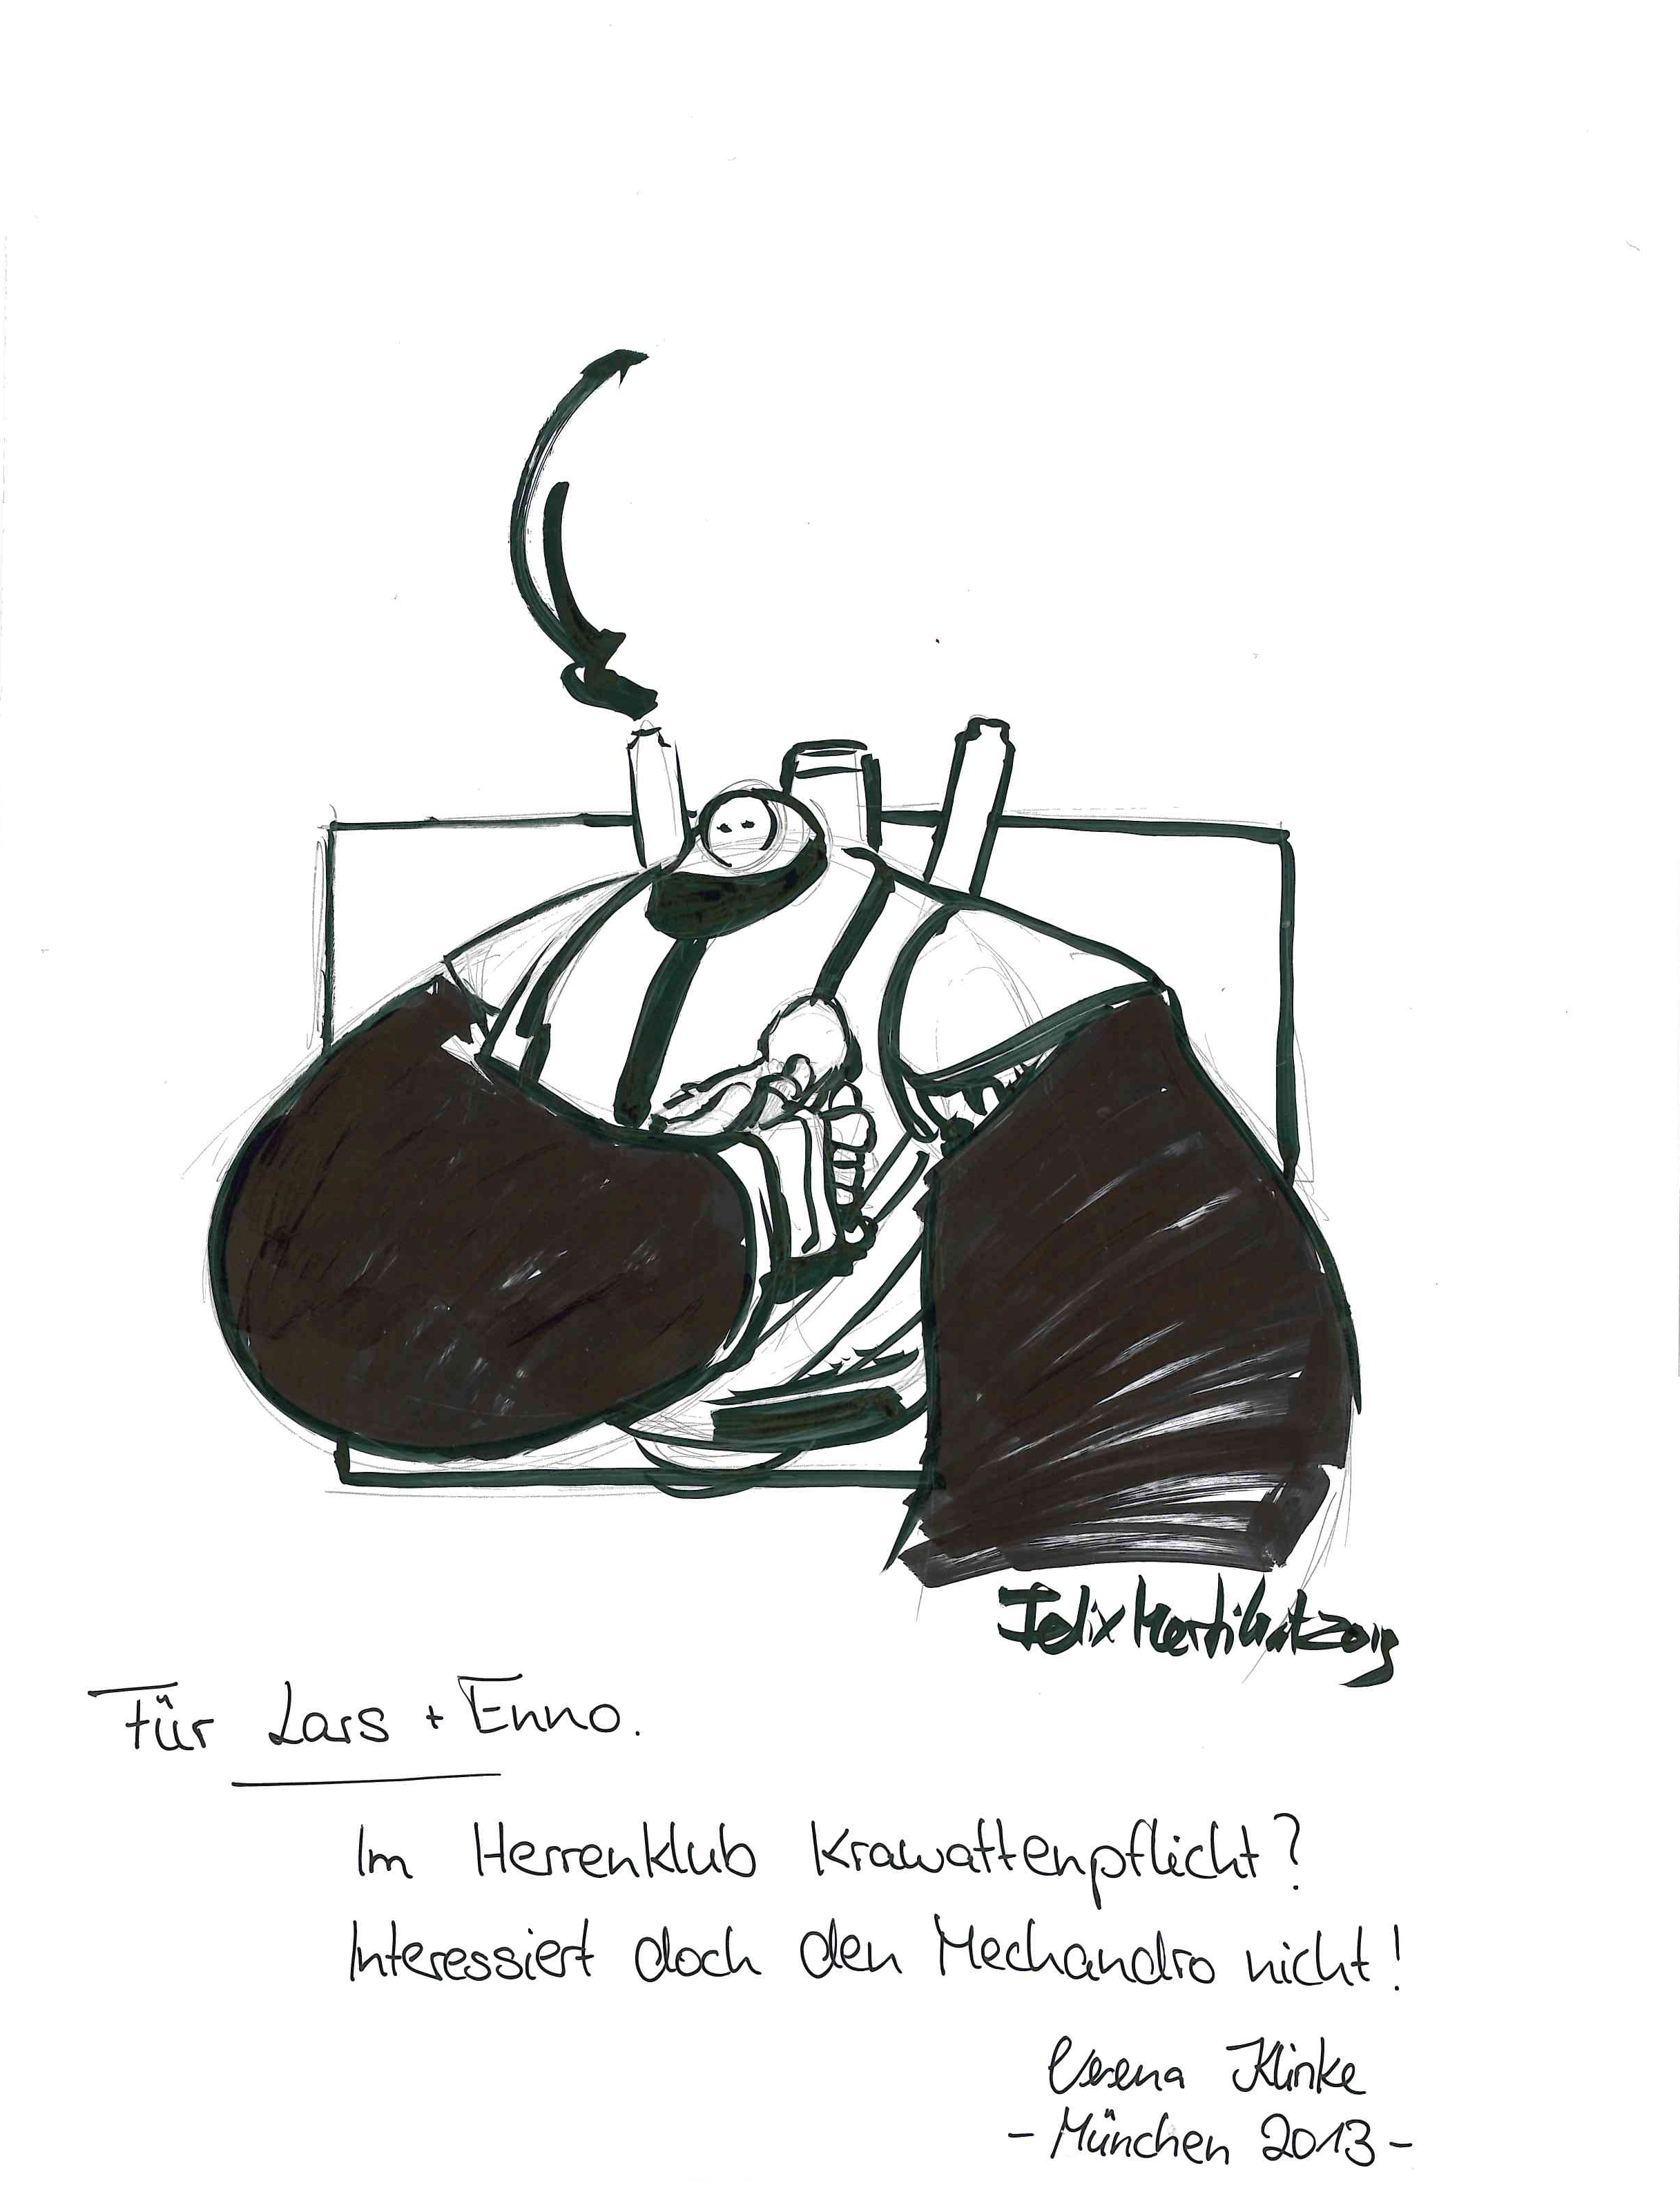 Felix Mertikat 2013
Für Lars + Enno.
Im Herrenklub Krawattenpflicht?
Interessiert doch den Mechandro nicht!
Verena Klinke
- München 2013 -